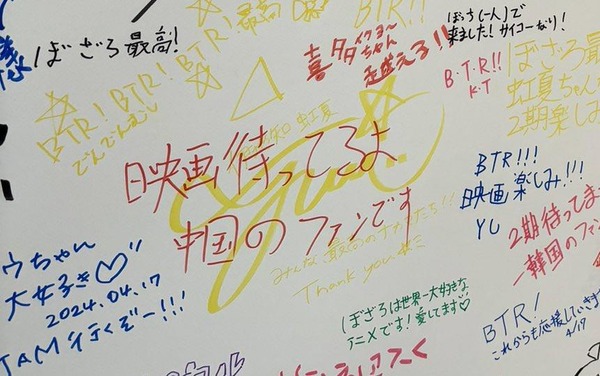 ぼざろ最高!
BTR! BTR! BTR!
でんでんむし
最高
BTR!!
喜多
イクヨ〜
ちゃん
ぼっち(一人)で
来ました!サイコーなり!
B・T・R!!
K.T
ぼざろ最
虹夏ちゃん
2期楽しみ
虹夏
映画待ってるよ
中国のファンです
みんな最高の
Thank you
BTR!!!
映画楽しみ!!!
YU
2期待ってま
韓国のファ
ウちゃん
大好き♡
2024.04.17
JAM行くぞー!!!
ぼざろは世界一大好きな
アニメです!愛してます♡
BTR!
これからも応援していきま
4/17